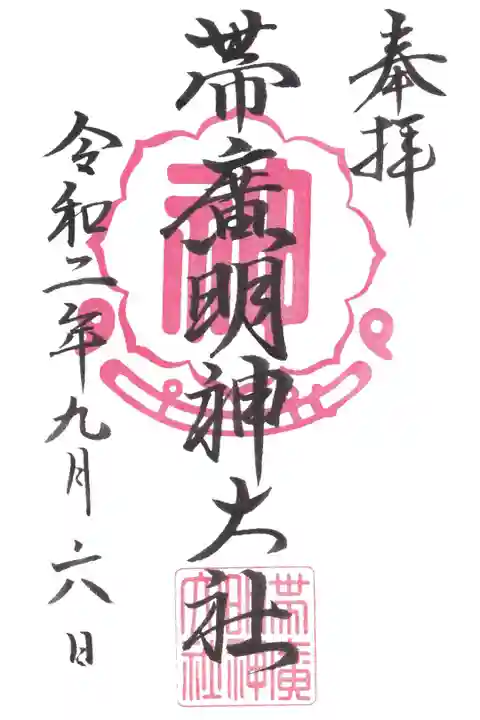 奉拝
帯廣明神大社
令和二年九月六日
帯廣
明神
大社